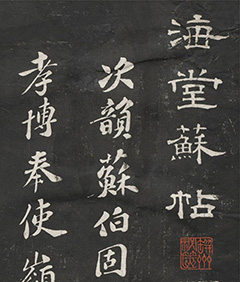 海堂蘇帖
次韻蘇伯固
孝博奉使嶺